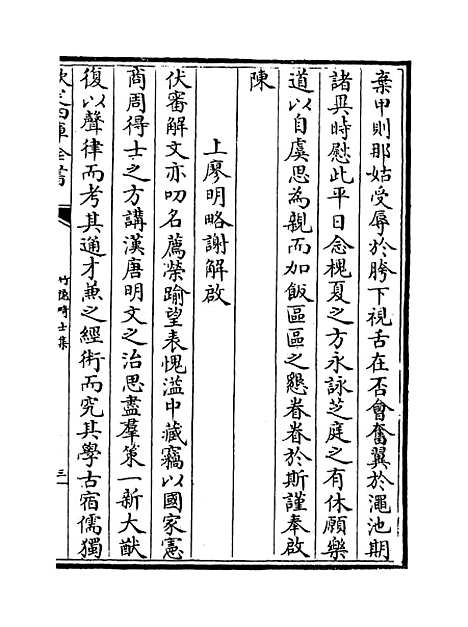 棄甲則那姑受辱於胯下視舌在否會奮翼於澠池期
諸異時慰此平日念槐夏之方永詠芝庭之有休願樂
道以自虞思為親而加飯區區之懇眷眷於斯謹奉啟
陳
上廖明略謝解啟
伏審解文亦叨名薦榮踰望表愧溢中藏竊以國家憲
商周得士之方講漢唐明文之治思盡羣策一新大猷
復以聲律而考其通才兼之經術而究其學古宿儒獨
欽定四庫全書
竹隠畸士集
三